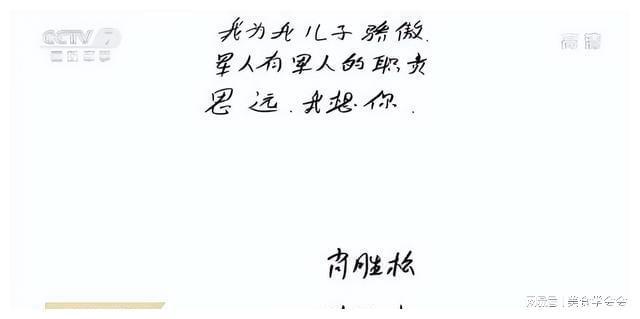 CCTV 7
国防军事
高清
我为我儿子骄傲.
军人有军人的职责
思远.我想你.
肖胜松
搜狐号|美食学会会